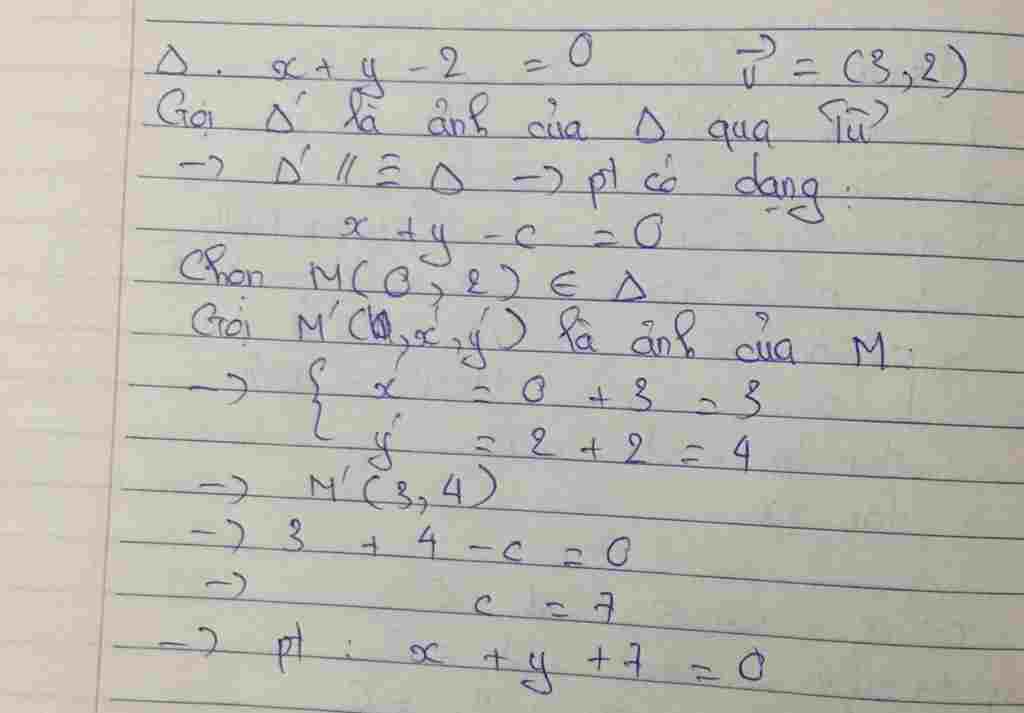 Δ. x + y - 2 = 0 v⃗ = (3,2)
Gọi Δ' là ảnh của Δ qua Tv⃗
→ Δ' // ≡ Δ → pt có dạng:
x + y - c = 0
Chọn M(0,2) ∈ Δ
Gọi M'(x',y') là ảnh của M.
→ { x' = 0 + 3 = 3
y' = 2 + 2 = 4
→ M'(3,4)
→ 3 + 4 - c = 0
→ c = 7
→ pt : x + y + 7 = 0